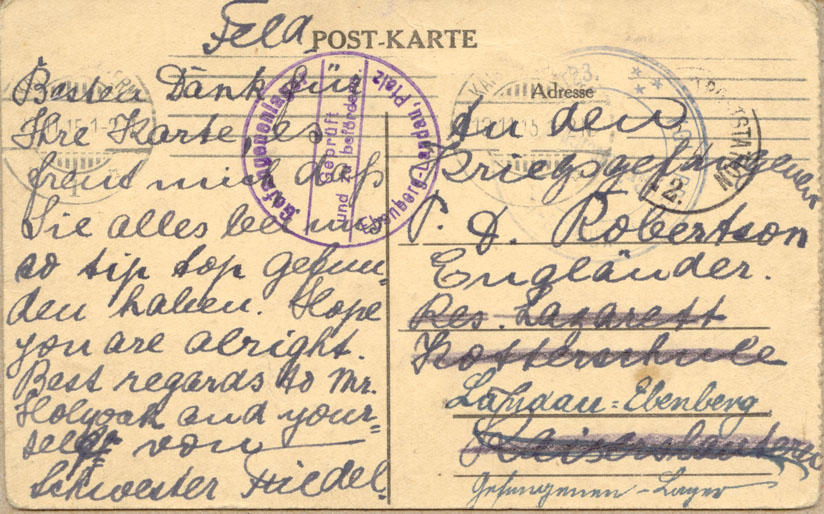 Feld
POST-KARTE
Besten Dank für
Ihre Karte, es
freut mich daß
Sie alles bei mir
so tip top gefun-
den haben. Hope
you are alright.
Best regards to Mr.
Holyoak and your-
self von
Schwester Friedel.
Gefangenenlager
Geprüft
und zu befördern
Ebenberg-Landau, Pfalz
Adresse
An den
Kriegsgefangenen
P. D. Robertson
Engländer.
Res. Lazarett
Kotterschule
Landau-Ebenberg
Kaiserslautern
Gefangenen-Lager
2.